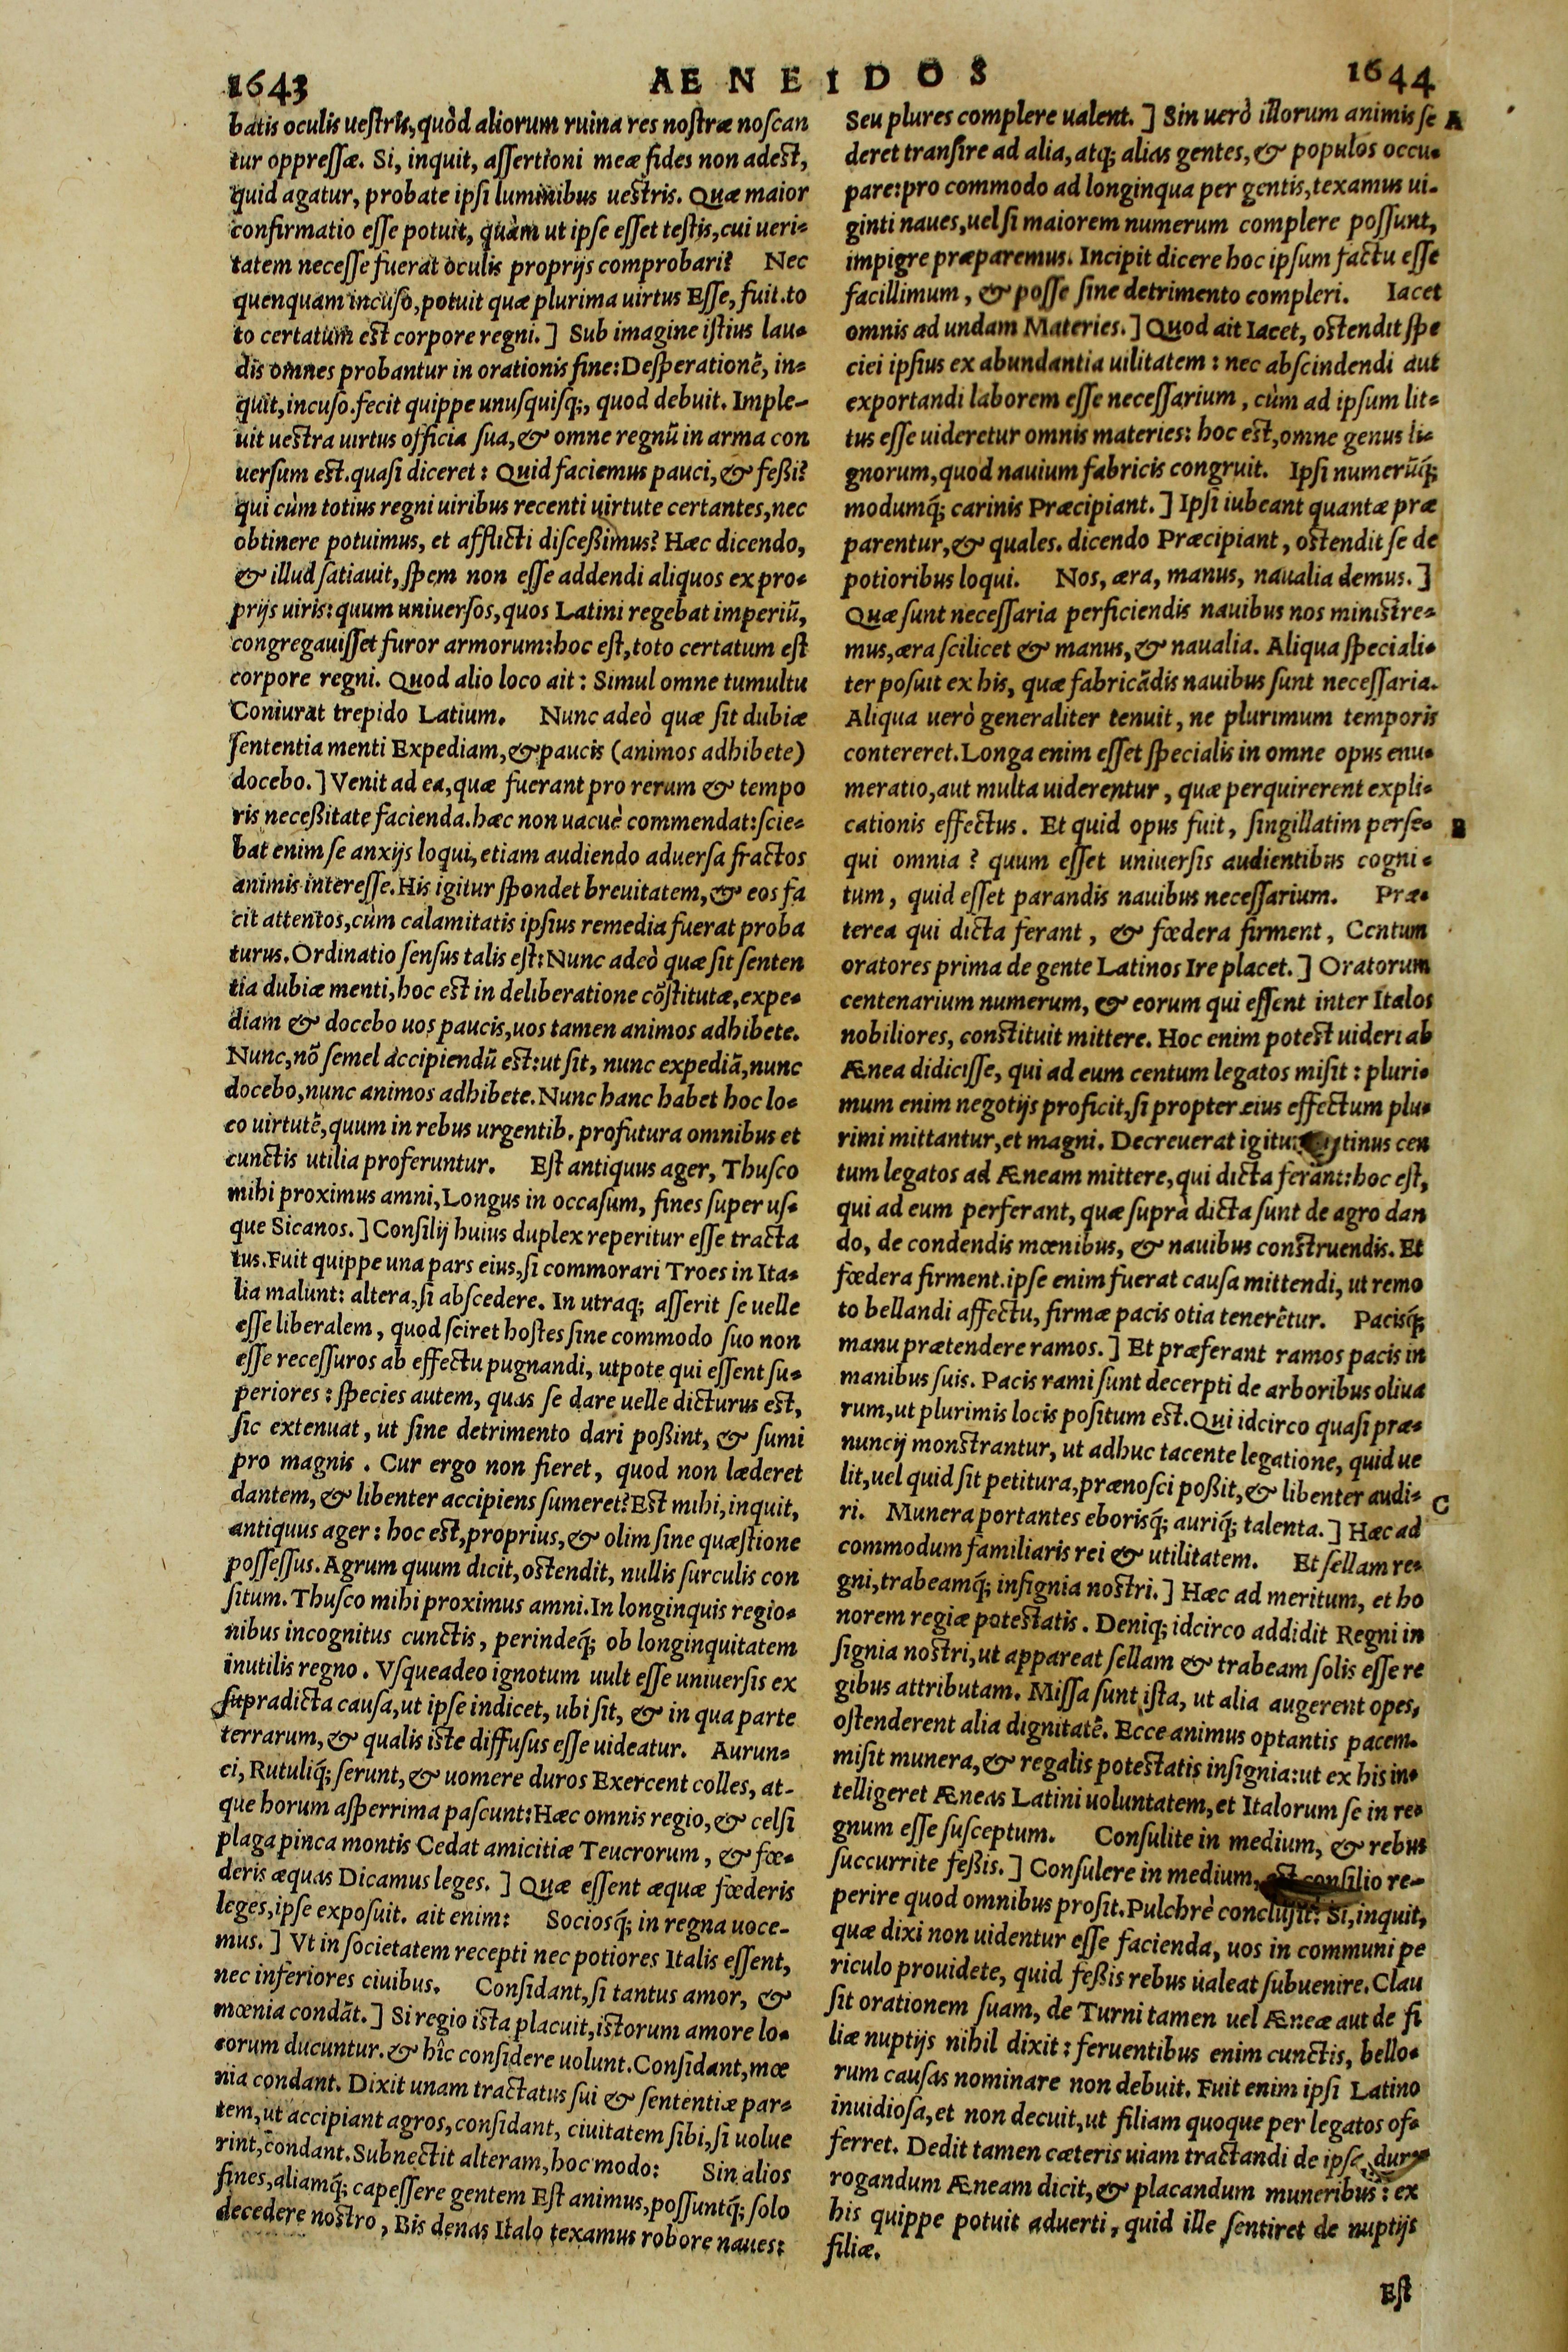 1643
AENEIDOS
1644
batis oculis uestris, quòd aliorum ruina res nostræ noscan
tur oppressæ. Si, inquit, assertioni meæ fides non adest,
quid agatur, probate ipsi luminibus uestris. Quæ maior
confirmatio esse potuit, quàm ut ipse esset testis, cui ueri-
tatem necesse fuerat oculis proprijs comprobari? Nec
quenquam incuso, potuit quæ plurima uirtus Esse, fuit. to
to certatum est corpore regni. ] Sub imagine istius lau-
dis omnes probantur in orationis fine: Desperationē, in-
quit, incuso. fecit quippe unusquisq;, quod debuit. Imple-
uit uestra uirtus officia sua, & omne regnū in arma con
uersum est. quasi diceret: Quid faciemus pauci, & feßi?
qui cùm totius regni uiribus recenti uirtute certantes, nec
obtinere potuimus, et afflicti disceßimus? Hæc dicendo,
& illud satiauit, spem non esse addendi aliquos ex pro-
prijs uiris: quum uniuersos, quos Latini regebat imperiū,
congregauisset furor armorum: hoc est, toto certatum est
corpore regni. Quod alio loco ait: Simul omne tumultu
Coniurat trepido Latium. Nunc adeò quæ sit dubiæ
sententia menti Expediam, & paucis (animos adhibete)
docebo. ] Venit ad ea, quæ fuerant pro rerum & tempo
ris neceßitate facienda. hæc non uacuè commendat: scie-
bat enim se anxijs loqui, etiam audiendo aduersa fractos
animis interesse. His igitur spondet breuitatem, & eos fa
cit attentos, cùm calamitatis ipsius remedia fuerat proba
turus. Ordinatio sensus talis est: Nunc adeò quæ sit senten
tia dubiæ menti, hoc est in deliberatione cōstitutæ, expe-
diam & docebo uos paucis, uos tamen animos adhibete.
Nunc, nō semel accipiendū est: ut sit, nunc expediā, nunc
docebo, nunc animos adhibete. Nunc hanc habet hoc lo-
co uirtutē, quum in rebus urgentib. profutura omnibus et
cunctis utilia proferuntur. Est antiquus ager, Thusco
mihi proximus amni, Longus in occasum, fines super us-
que Sicanos. ] Consilij huius duplex reperitur esse tracta
tus. Fuit quippe una pars eius, si commorari Troes in Ita-
lia malunt: altera, si abscedere. In utraq; asserit se uelle
esse liberalem, quod sciret hostes sine commodo suo non
esse recessuros ab effectu pugnandi, utpote qui essent su-
periores: species autem, quas se dare uelle dicturus est,
sic extenuat, ut sine detrimento dari poßint, & sumi
pro magnis. Cur ergo non fieret, quod non læderet
dantem, & libenter accipiens sumeret? Est mihi, inquit,
antiquus ager: hoc est, proprius, & olim sine quæstione
possessus. Agrum quum dicit, ostendit, nullis surculis con
situm. Thusco mihi proximus amni. In longinquis regio-
nibus incognitus cunctis, perindeq́; ob longinquitatem
inutilis regno. Vsqueadeo ignotum uult esse uniuersis ex
supradicta causa, ut ipse indicet, ubi sit, & in qua parte
terrarum, & qualis iste diffusus esse uideatur. Aurun-
ci, Rutuliq́; serunt, & uomere duros Exercent colles, at-
que horum asperrima pascunt: Hæc omnis regio, & celsi
plaga pinea montis Cedat amicitiæ Teucrorum, & fœ-
deris æquas Dicamus leges. ] Quæ essent æquæ fœderis
leges, ipse exposuit. ait enim: Sociosq́; in regna uoce-
mus. ] Vt in societatem recepti nec potiores Italis essent,
nec inferiores ciuibus. Considant, si tantus amor, &
mœnia condāt. ] Si regio ista placuit, istorum amore lo-
corum ducuntur. & hîc considere uolunt. Considant, mœ
nia condant. Dixit unam tractatus sui & sententiæ par-
tem, ut accipiant agros, considant, ciuitatem sibi, si uolue
rint, condant. Subnectit alteram, hoc modo: Sin alios
fines, aliamq́; capessere gentem Est animus, possuntq́; solo
decedere nostro, Bis denas Italo texamus robore naues:
Seu plures complere ualent. ] Sin uerò illorum animis se
A
deret transire ad alia, atq; alias gentes, & populos occu-
pare: pro commodo ad longinqua per gentis, texamus ui-
ginti naues, uel si maiorem numerum complere possunt,
impigre præparemus. Incipit dicere hoc ipsum factu esse
facillimum, & posse sine detrimento compleri. Iacet
omnis ad undam Materies. ] Quod ait Iacet, ostendit spe
ciei ipsius ex abundantia uilitatem: nec abscindendi aut
exportandi laborem esse necessarium, cùm ad ipsum lit-
tus esse uideretur omnis materies: hoc est, omne genus li-
gnorum, quod nauium fabricis congruit. Ipsi numerūq́;
modumq́; carinis Præcipiant. ] Ipsi iubeant quantæ præ
parentur, & quales. dicendo Præcipiant, ostendit se de
potioribus loqui. Nos, æra, manus, naualia demus. ]
Quæ sunt necessaria perficiendis nauibus nos ministre-
mus, æra scilicet & manus, & naualia. Aliqua speciali-
ter posuit ex his, quæ fabricādis nauibus sunt necessaria.
Aliqua uerò generaliter tenuit, ne plurimum temporis
contereret. Longa enim esset specialis in omne opus enu-
meratio, aut multa uiderentur, quæ perquirerent expli-
cationis effectus. Et quid opus fuit, singillatim perse-
B
qui omnia? quum esset uniuersis audientibus cogni-
tum, quid esset parandis nauibus necessarium. Præ-
terea qui dicta ferant, & fœdera firment, Centum
oratores prima de gente Latinos Ire placet. ] Oratorum
centenarium numerum, & eorum qui essent inter Italos
nobiliores, constituit mittere. Hoc enim potest uideri ab
Ænea didicisse, qui ad eum centum legatos misit: pluri-
mum enim negotijs proficit, si propter eius effectum plu-
rimi mittantur, et magni. Decreuerat igitur tinus cen
tum legatos ad Æneam mittere, qui dicta ferant: hoc est,
qui ad eum perferant, quæ suprà dicta sunt de agro dan
do, de condendis mœnibus, & nauibus construendis. Et
fœdera firment. ipse enim fuerat causa mittendi, ut remo
to bellandi affectu, firmæ pacis otia tenerētur. Pacisq́;
manu prætendere ramos. ] Et præferant ramos pacis in
manibus suis. Pacis rami sunt decerpti de arboribus oliua
rum, ut plurimis locis positum est. Qui idcirco quasi præ-
nuncij monstrantur, ut adhuc tacente legatione, quid ue
lit, uel quid sit petitura, prænosci poßit, & libenter audi-
C
ri. Munera portantes eborisq́; auriq́; talenta. ] Hæc ad
commodum familiaris rei & utilitatem. Et sellam re-
gni, trabeamq́; insignia nostri. ] Hæc ad meritum, et ho
norem regiæ potestatis. Deniq; idcirco addidit Regni in
signia nostri, ut appareat sellam & trabeam solis esse re
gibus attributam. Missa sunt ista, ut alia augerent opes,
ostenderent alia dignitatē. Ecce animus optantis pacem.
misit munera, & regalis potestatis insignia: ut ex his in-
telligeret Æneas Latini uoluntatem, et Italorum se in re-
gnum esse susceptum. Consulite in medium, & rebus
succurrite feßis. ] Consulere in medium, est consilio re-
perire quod omnibus prosit. Pulchrè conclusit: Si, inquit,
quæ dixi non uidentur esse facienda, uos in communi pe
riculo prouidete, quid feßis rebus ualeat subuenire. Clau
sit orationem suam, de Turni tamen uel Æneæ aut de fi
liæ nuptijs nihil dixit: feruentibus enim cunctis, bello-
rum causas nominare non debuit. Fuit enim ipsi Latino
inuidiosa, et non decuit, ut filiam quoque per legatos of-
ferret. Dedit tamen cæteris uiam tractandi de ipsa, dum
rogandum Æneam dicit, & placandum muneribus: ex
his quippe potuit aduerti, quid ille sentiret de nuptijs
filiæ.
Est